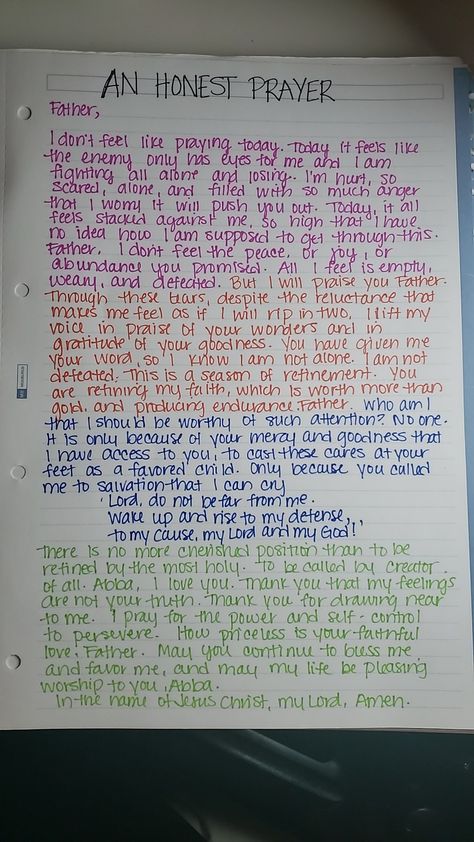 AN HONEST PRAYER
Father,
I don't feel like praying today. Today it feels like
the enemy only has eyes for me and I am
fighting all alone and losing. I'm hurt, so
scared, alone, and filled with so much anger
that I worry it will push you out. Today, it all
feels stacked against me, so high that I have
no idea how I am supposed to get through this.
Father, I don't feel the peace, or joy, or
abundance you promised. All I feel is empty,
weary, and defeated. But I will praise you Father.
Through these tears, despite the reluctance that
makes me feel as if I will rip in two, I lift my
voice in praise of your wonders and in
gratitude of your goodness. You have given me
your word, so I know I am not alone. I am not
defeated. This is a season of refinement. You
are refining my faith, which is worth more than
gold, and producing endurance. Father, who am I
that I should be worthy of such attention? No one.
It is only because of your mercy and goodness that
I have access to you, to cast these cares at your
feet as a favored child. Only because you called
me to salvation that I can cry
'Lord, do not be far from me.
Wake up and rise to my defense,
to my cause, my Lord and my God!'
There is no more cherished position than to be
refined by the most holy. To be called by creator
of all. Abba, I love you. Thank you that my feelings
are not your truth. Thank you for drawing near
to me. I pray for the power and self-control
to persevere. How priceless is your faithful
love! Father. May you continue to bless me
and favor me, and may my life be pleasing
worship to you, Abba.
In the name of Jesus Christ, my Lord, Amen.